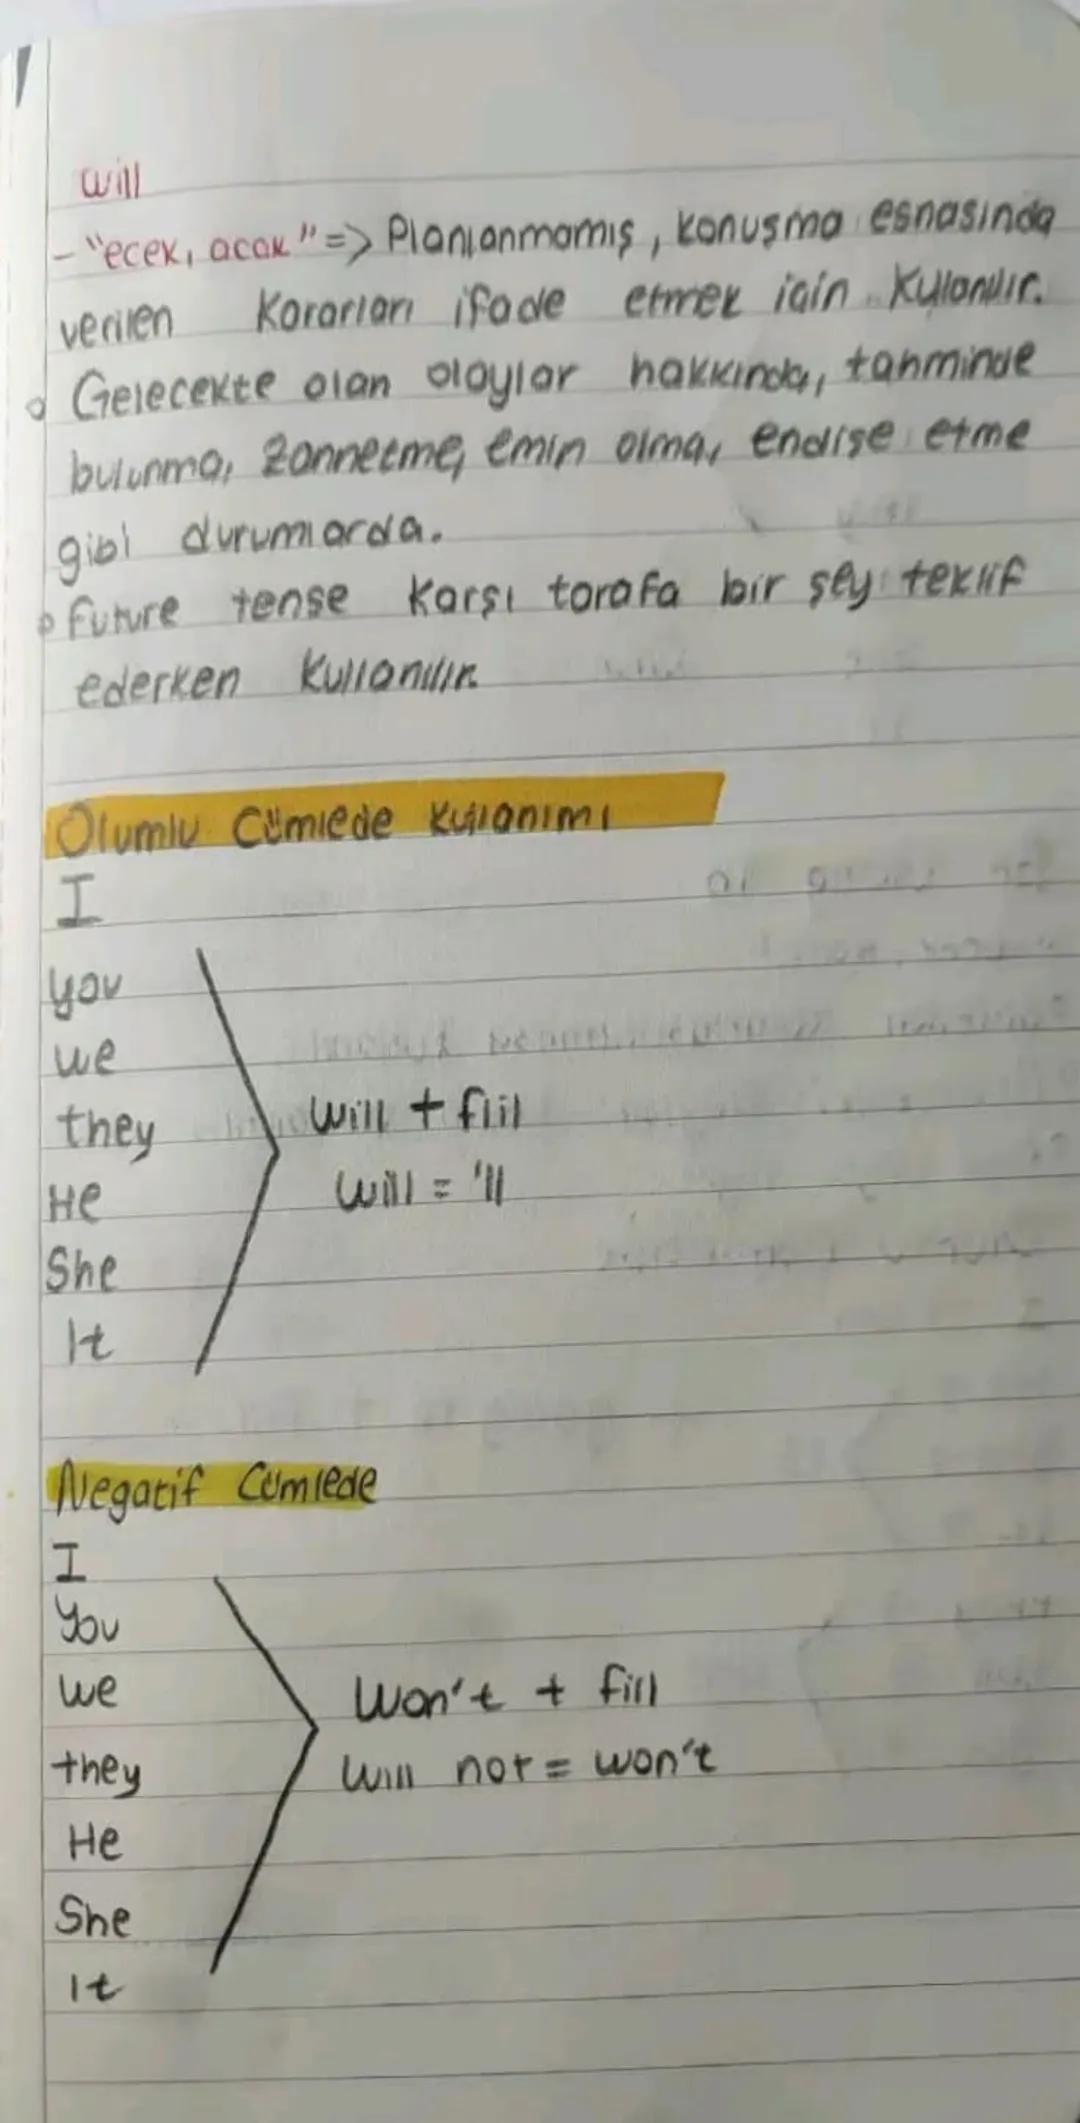 will
- "ecek, acak" => Planlanmamış, konuşma esnasında
verilen kararları ifade etmek için kullanılır.
Gelecekte olan olaylar hakkında, tahminde
bulunma, zannetme, emin olma, endişe etme
gibi durumlarda.
future tense karşı tarafa bir şey teklif
ederken kullanılır.
Olumlu Cümlede Kullanımı
I
you
we
they
He
She
It
will + fiil
will = 'll
Negatif Cümlede
I
You
we
they
He
She
It
Won't + fiil
Will not = won't